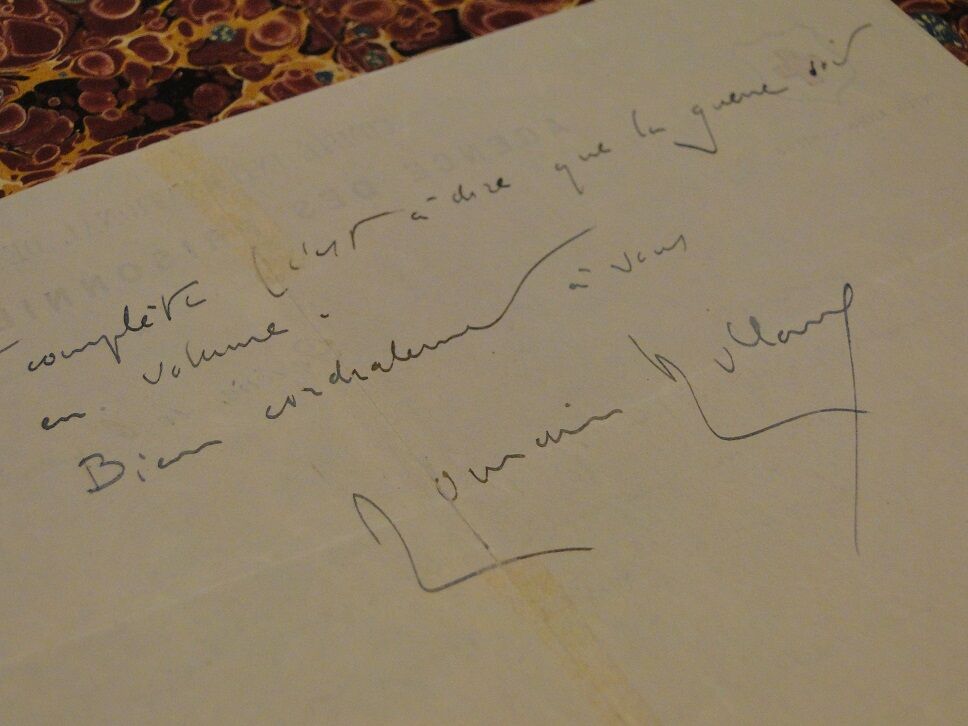 complète (c'est à dire que la guerre soit
en volume.
Bien cordialement à vous
Romain Rolland
AGENCE DES
PRISONNIE